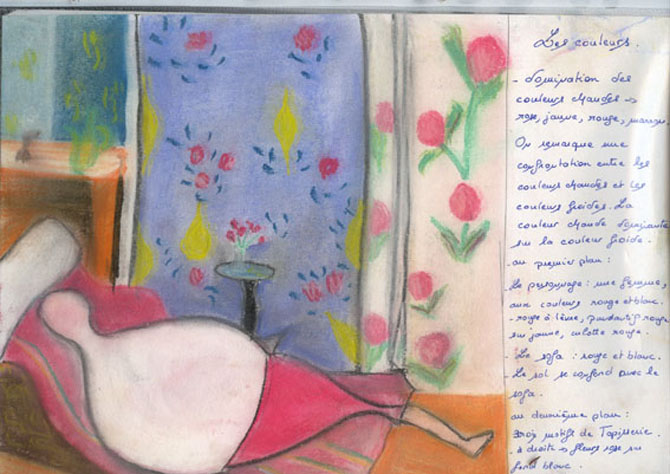 Les couleurs.
- domination des
couleurs chaudes →
rose, jaune, rouge, marron.
On remarque une
confrontation entre les
couleurs chaudes et les
couleurs froides. La
couleur chaude dominante
sur la couleur froide.
au premier plan :
Le personnage : une femme,
aux couleurs rouge et blanc
- rouge à lèvre, pendantif rouge
au jaune, culotte rouge.
- Le sofa : rouge et blanc.
- Le sol se confond avec le
sofa.
au deuxième plan :
Trois motifs de Tapisserie.
- à droite → fleurs rose sur
fond blanc.